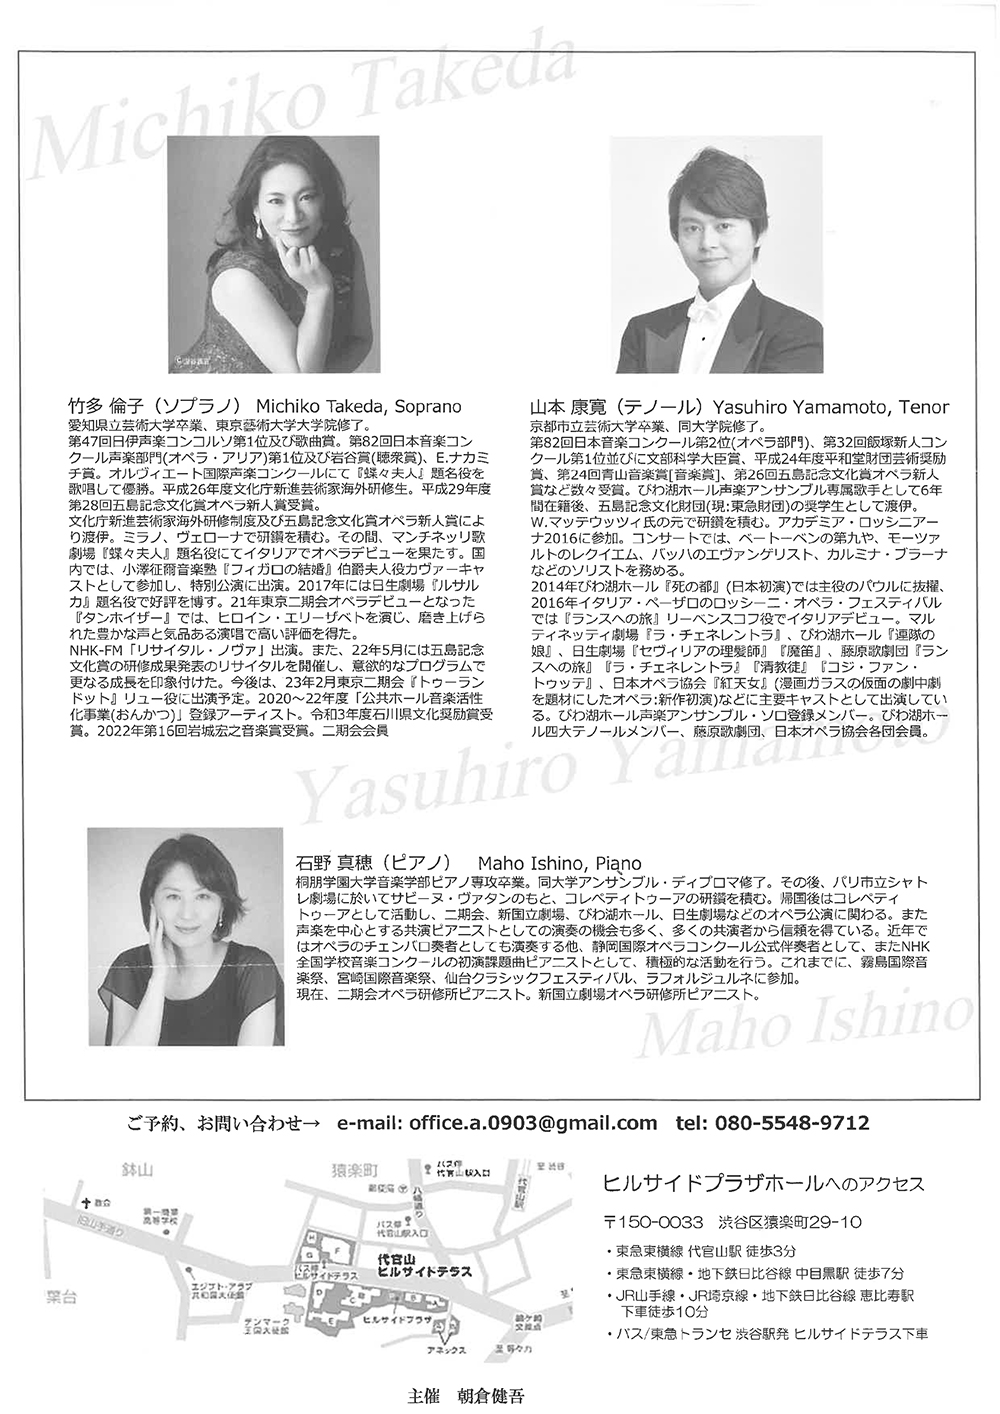 Michiko Takeda
© 深谷義宣
竹多 倫子（ソプラノ） Michiko Takeda, Soprano
愛知県立芸術大学卒業、東京藝術大学大学院修了。
第47回日伊声楽コンコルソ第1位及び歌曲賞。第82回日本音楽コン
クール声楽部門(オペラ・アリア)第1位及び岩谷賞(聴衆賞)、E.ナカミ
チ賞。オルヴィエート国際声楽コンクールにて『蝶々夫人』題名役を
歌唱して優勝。平成26年度文化庁新進芸術家海外研修生。平成29年度
第28回五島記念文化賞オペラ新人賞受賞。
文化庁新進芸術家海外研修制度及び五島記念文化賞オペラ新人賞によ
り渡伊。ミラノ、ヴェローナで研鑽を積む。その間、マンチネッリ歌
劇場『蝶々夫人』題名役にてイタリアでオペラデビューを果たす。国
内では、小澤征爾音楽塾『フィガロの結婚』伯爵夫人役カヴァーキャ
ストとして参加し、特別公演に出演。2017年には日生劇場『ルサル
カ』題名役で好評を博す。21年東京二期会オペラデビューとなった
『タンホイザー』では、ヒロイン・エリーザベトを演じ、磨き上げら
れた豊かな声と気品ある演唱で高い評価を得た。
NHK-FM「リサイタル・ノヴァ」出演。また、22年5月には五島記念
文化賞の研修成果発表のリサイタルを開催し、意欲的なプログラムで
更なる成長を印象付けた。今後は、23年2月東京二期会『トゥーラン
ドット』リュー役に出演予定。2020～22年度「公共ホール音楽活性
化事業(おんかつ)」登録アーティスト。令和3年度石川県文化奨励賞受
賞。2022年第16回岩城宏之音楽賞受賞。二期会会員
山本 康寛（テノール）Yasuhiro Yamamoto, Tenor
京都市立芸術大学卒業、同大学院修了。
第82回日本音楽コンクール第2位(オペラ部門)、第32回飯塚新人コン
クール第1位並びに文部科学大臣賞、平成24年度平和堂財団芸術奨励
賞、第24回青山音楽賞[音楽賞]、第26回五島記念文化賞オペラ新人
賞など数々受賞。びわ湖ホール声楽アンサンブル専属歌手として6年
間在籍後、五島記念文化財団(現:東急財団)の奨学生として渡伊。
W.マッテウッツィ氏の元で研鑽を積む。アカデミア・ロッシニアー
ナ2016に参加。コンサートでは、ベートーベンの第九や、モーツァ
ルトのレクイエム、バッハのエヴァンゲリスト、カルミナ・ブラーナ
などのソリストを務める。
2014年びわ湖ホール『死の都』(日本初演)では主役のパウルに抜擢、
2016年イタリア・ペーザロのロッシーニ・オペラ・フェスティバル
では『ランスへの旅』リーベンスコフ役でイタリアデビュー。マル
ティネッティ劇場『ラ・チェネレントラ』、びわ湖ホール『連隊の
娘』、日生劇場『セヴィリアの理髪師』『魔笛』、藤原歌劇団『ラン
スへの旅』『ラ・チェネレントラ』『清教徒』『コジ・ファン・
トゥッテ』、日本オペラ協会『紅天女』(漫画ガラスの仮面の劇中劇
を題材にしたオペラ:新作初演)などに主要キャストとして出演してい
る。びわ湖ホール声楽アンサンブル・ソロ登録メンバー。びわ湖ホー
ル四大テノールメンバー、藤原歌劇団、日本オペラ協会各団会員。
Yasuhiro Yamamoto
石野 真穂（ピアノ） Maho Ishino, Piano
桐朋学園大学音楽学部ピアノ専攻卒業。同大学アンサンブル・ディプロマ修了。その後、パリ市立シャト
レ劇場に於いてサビーヌ・ヴァタンのもと、コレペティトゥーアの研鑽を積む。帰国後はコレペティ
トゥーアとして活動し、二期会、新国立劇場、びわ湖ホール、日生劇場などのオペラ公演に関わる。また
声楽を中心とする共演ピアニストとしての演奏の機会も多く、多くの共演者から信頼を得ている。近年で
はオペラのチェンバロ奏者としても演奏する他、静岡国際オペラコンクール公式伴奏者として、またNHK
全国学校音楽コンクールの初演課題曲ピアニストとして、積極的な活動を行う。これまでに、霧島国際音
楽祭、宮崎国際音楽祭、仙台クラシックフェスティバル、ラフォルジュルネに参加。
現在、二期会オペラ研修所ピアニスト。新国立劇場オペラ研修所ピアニスト。
Maho Ishino
ご予約、お問い合わせ→ e-mail: office.a.0903@gmail.com tel: 080-5548-9712
鉢山
猿楽町
バス停
代官山駅入口
至 渋谷
郵便局
八幡通り
代官山駅
教会
旧山手通り
第一商業
高等学校
バス停
代官山駅入口
H
G
F
代官山
ヒルサイドテラス
バス停
ヒルサイドテラス
葉台
エジプト・アラブ
共和国大使館
D
C
B
A
E
デンマーク
王国大使館
ヒルサイドプラザ
アネックス
鎗ヶ崎
交差点
至 等々力
ヒルサイドプラザホールへのアクセス
〒150-0033 渋谷区猿楽町29-10
・東急東横線 代官山駅 徒歩3分
・東急東横線・地下鉄日比谷線 中目黒駅 徒歩7分
・JR山手線・JR埼京線・地下鉄日比谷線 恵比寿駅
下車徒歩10分
・バス/東急トランセ 渋谷駅発 ヒルサイドテラス下車
主催 朝倉健吾